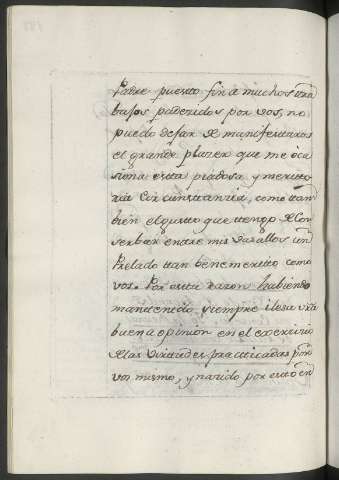 Padre puesto fin á muchos tra
bajos padecidos por vos, no
puedo dejar de manifestaros
el grande plazer que me oca
siona esta piadosa y merito
ria circunstancia, como tam
bien el gusto que tengo de Con
serbar entre mis vasallos un
Prelado tan benemerito como
vos. Por esta razon habiendo
mantenido siempre ilesa vra
buena opinion en el exercicio
de las virtudes practicadas por
vos mismo, y nacido por esto en